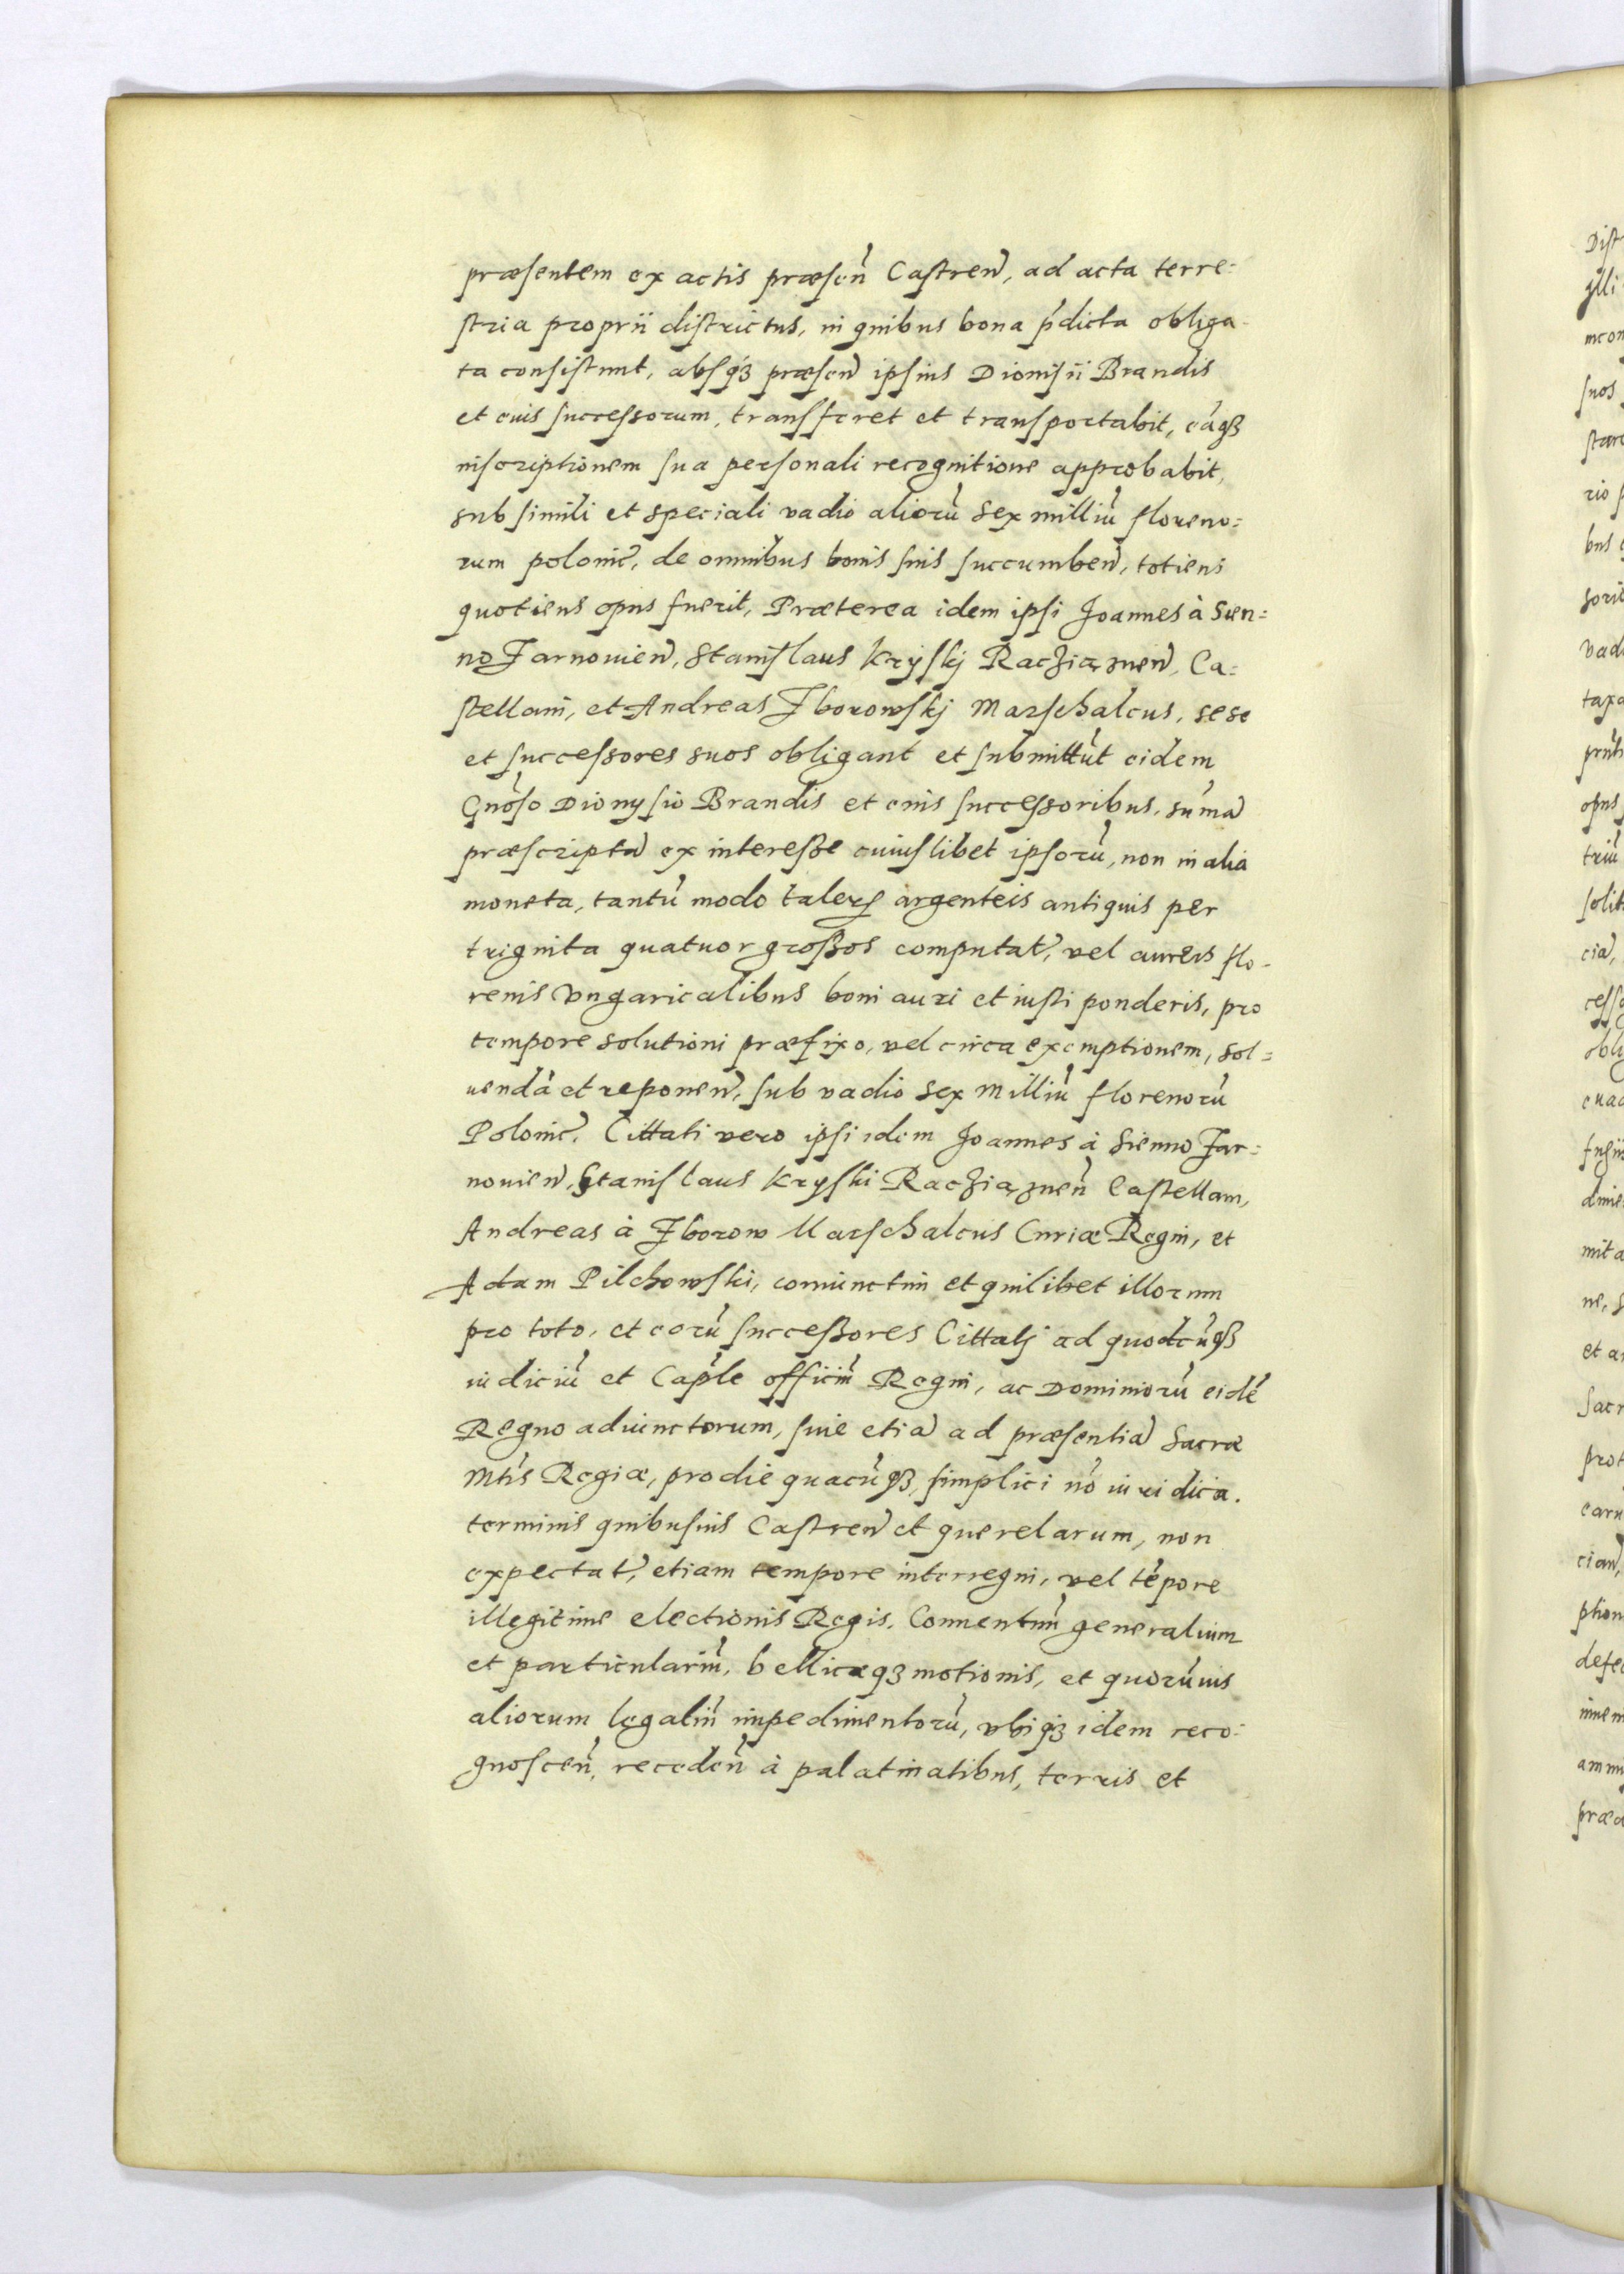 præsentem ex actis præsen̄ Castren̄, ad acta terre=
stria proprii districtus, in quibus bona p̄dicta obliga-
ta consistunt, absq₃ præsen̄ ipsius Dionisii Brandis
et eius successorum, transferet et transportabit, eāq₃
inscriptionem sua personali recognitione approbabit,
sub simili et speciali vadio aliorū sex milliū floreno=
rum polonic̄, de omnibus bonis suis succumben̄, totiens
quotiens opus fuerit, Præterea idem ipsi Joannes à Sien=
no Zarnouien̄, Stanislaus Kryskj Racziąznen̄, Ca=
stellani, et Andreas Zborowskj Marschalcus, sese
et successores suos obligant et submittūt eidem
Gnōso Dionysio Brandis et eius successoribus, sūmā
præscriptā ex interesse cuiuslibet ipsorū, non in alia
moneta, tantū modo taleris argenteis antiquis per
triginta quatuor grossos computat̄, vel aureis flo-
renis Vngaricalibus boni auri et iusti ponderis, pro
tempore solutioni præfixo, vel circa exemptionem, sol=
uendā et reponen̄, sub vadio sex Milliū florenorū
Polonic̄. Cittati vero ipsi idem Joannes à Sienno Zar=
nouien̄, Stanislaus Kryski Racziąznen̄ Castellani,
Andreas à Zborow Marschalcus Curiæ Regni, et
Adam Pilchowski, coniunctim et quilibet illorum
pro toto, et eorū successores Cittati ad quodcūq₃
iudiciū et Cap̄le officiū Regni, ac Dominiorū eidē
Regno adiunctorum, siue etiā ad præsentiā Sacræ
Mtīs Regiæ, pro die quacūq₃, simplici nō iuridica.
terminis quibusuis Castren̄ et querelarum, non
expectat̄, etiam tempore interregni, vel tēpore
illegitime electionis Regis. Conuentuū generalium
et particulariū, bellicæq₃ motionis, et quorūuis
aliorum legaliū impedimentorū, vbiq₃ idem reco=
gnoscen̄, receden̄ à palatinatibus, terris et